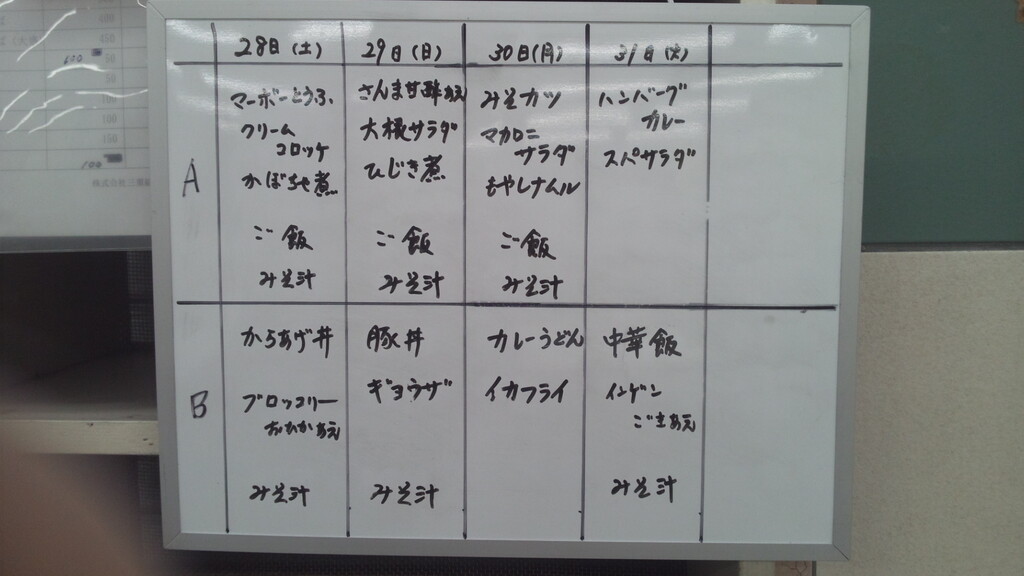 28日(土) 29日(日) 30日(月) 31日(火)
A
マーボーとうふ
クリーム
コロッケ
かぼちゃ煮
ご飯
みそ汁
さんま甘酢あえ
大根サラダ
ひじき煮
ご飯
みそ汁
みそカツ
マカロニ
サラダ
もやしナムル
ご飯
みそ汁
ハンバーグ
カレー
スパサラダ
B
からあげ丼
ブロッコリー
おひかあえ
みそ汁
豚丼
ギョウザ
みそ汁
カレーうどん
イカフライ
中華飯
インゲン
ごまあえ
みそ汁
600
450
100
150
100